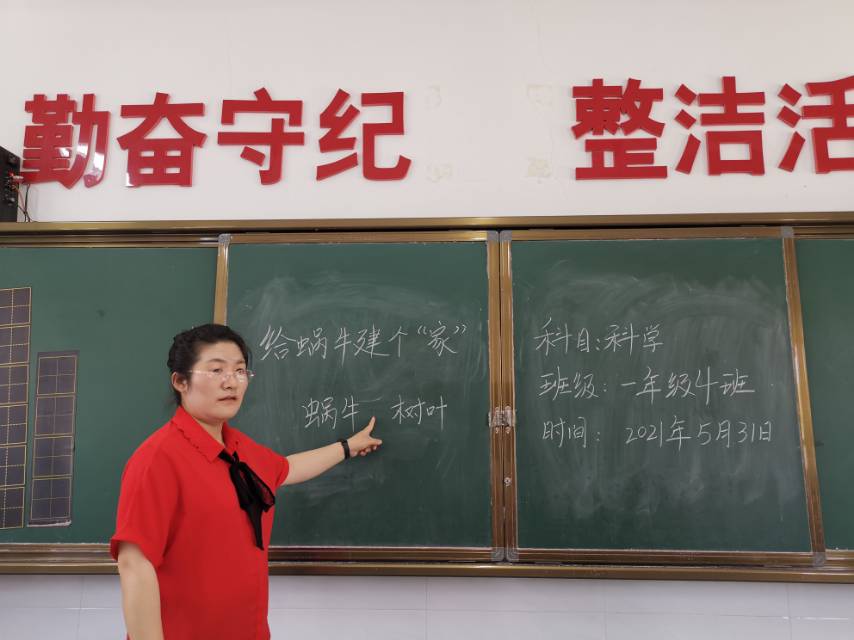 勤奋守纪 整洁活
给蜗牛建个“家”
蜗牛 树叶
科目：科学
班级：一年级4班
时间：2021年5月31日